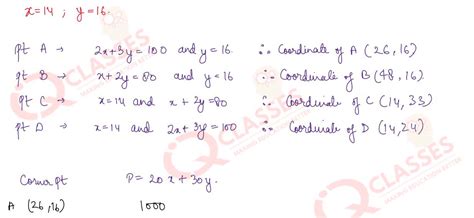 x=14 ; y=16.
pt A → 2x+3y=100 and y=16. ∴ Coordinate of A (26,16)
pt B → x+2y=80 and y=16 ∴ Coordinate of B (48,16).
pt C → x=14 and x+2y=80 ∴ Coordinate of C (14,33)
pt D → x=14 and 2x+3y=100 ∴ Coordinate of D (14,24)
Corner pt P=20x+30y.
A (26,16) 1000
IQ CLASSES
MAKING EDUCATION BETTER
IQ CLASSES
MAKING EDUCATION BETTER